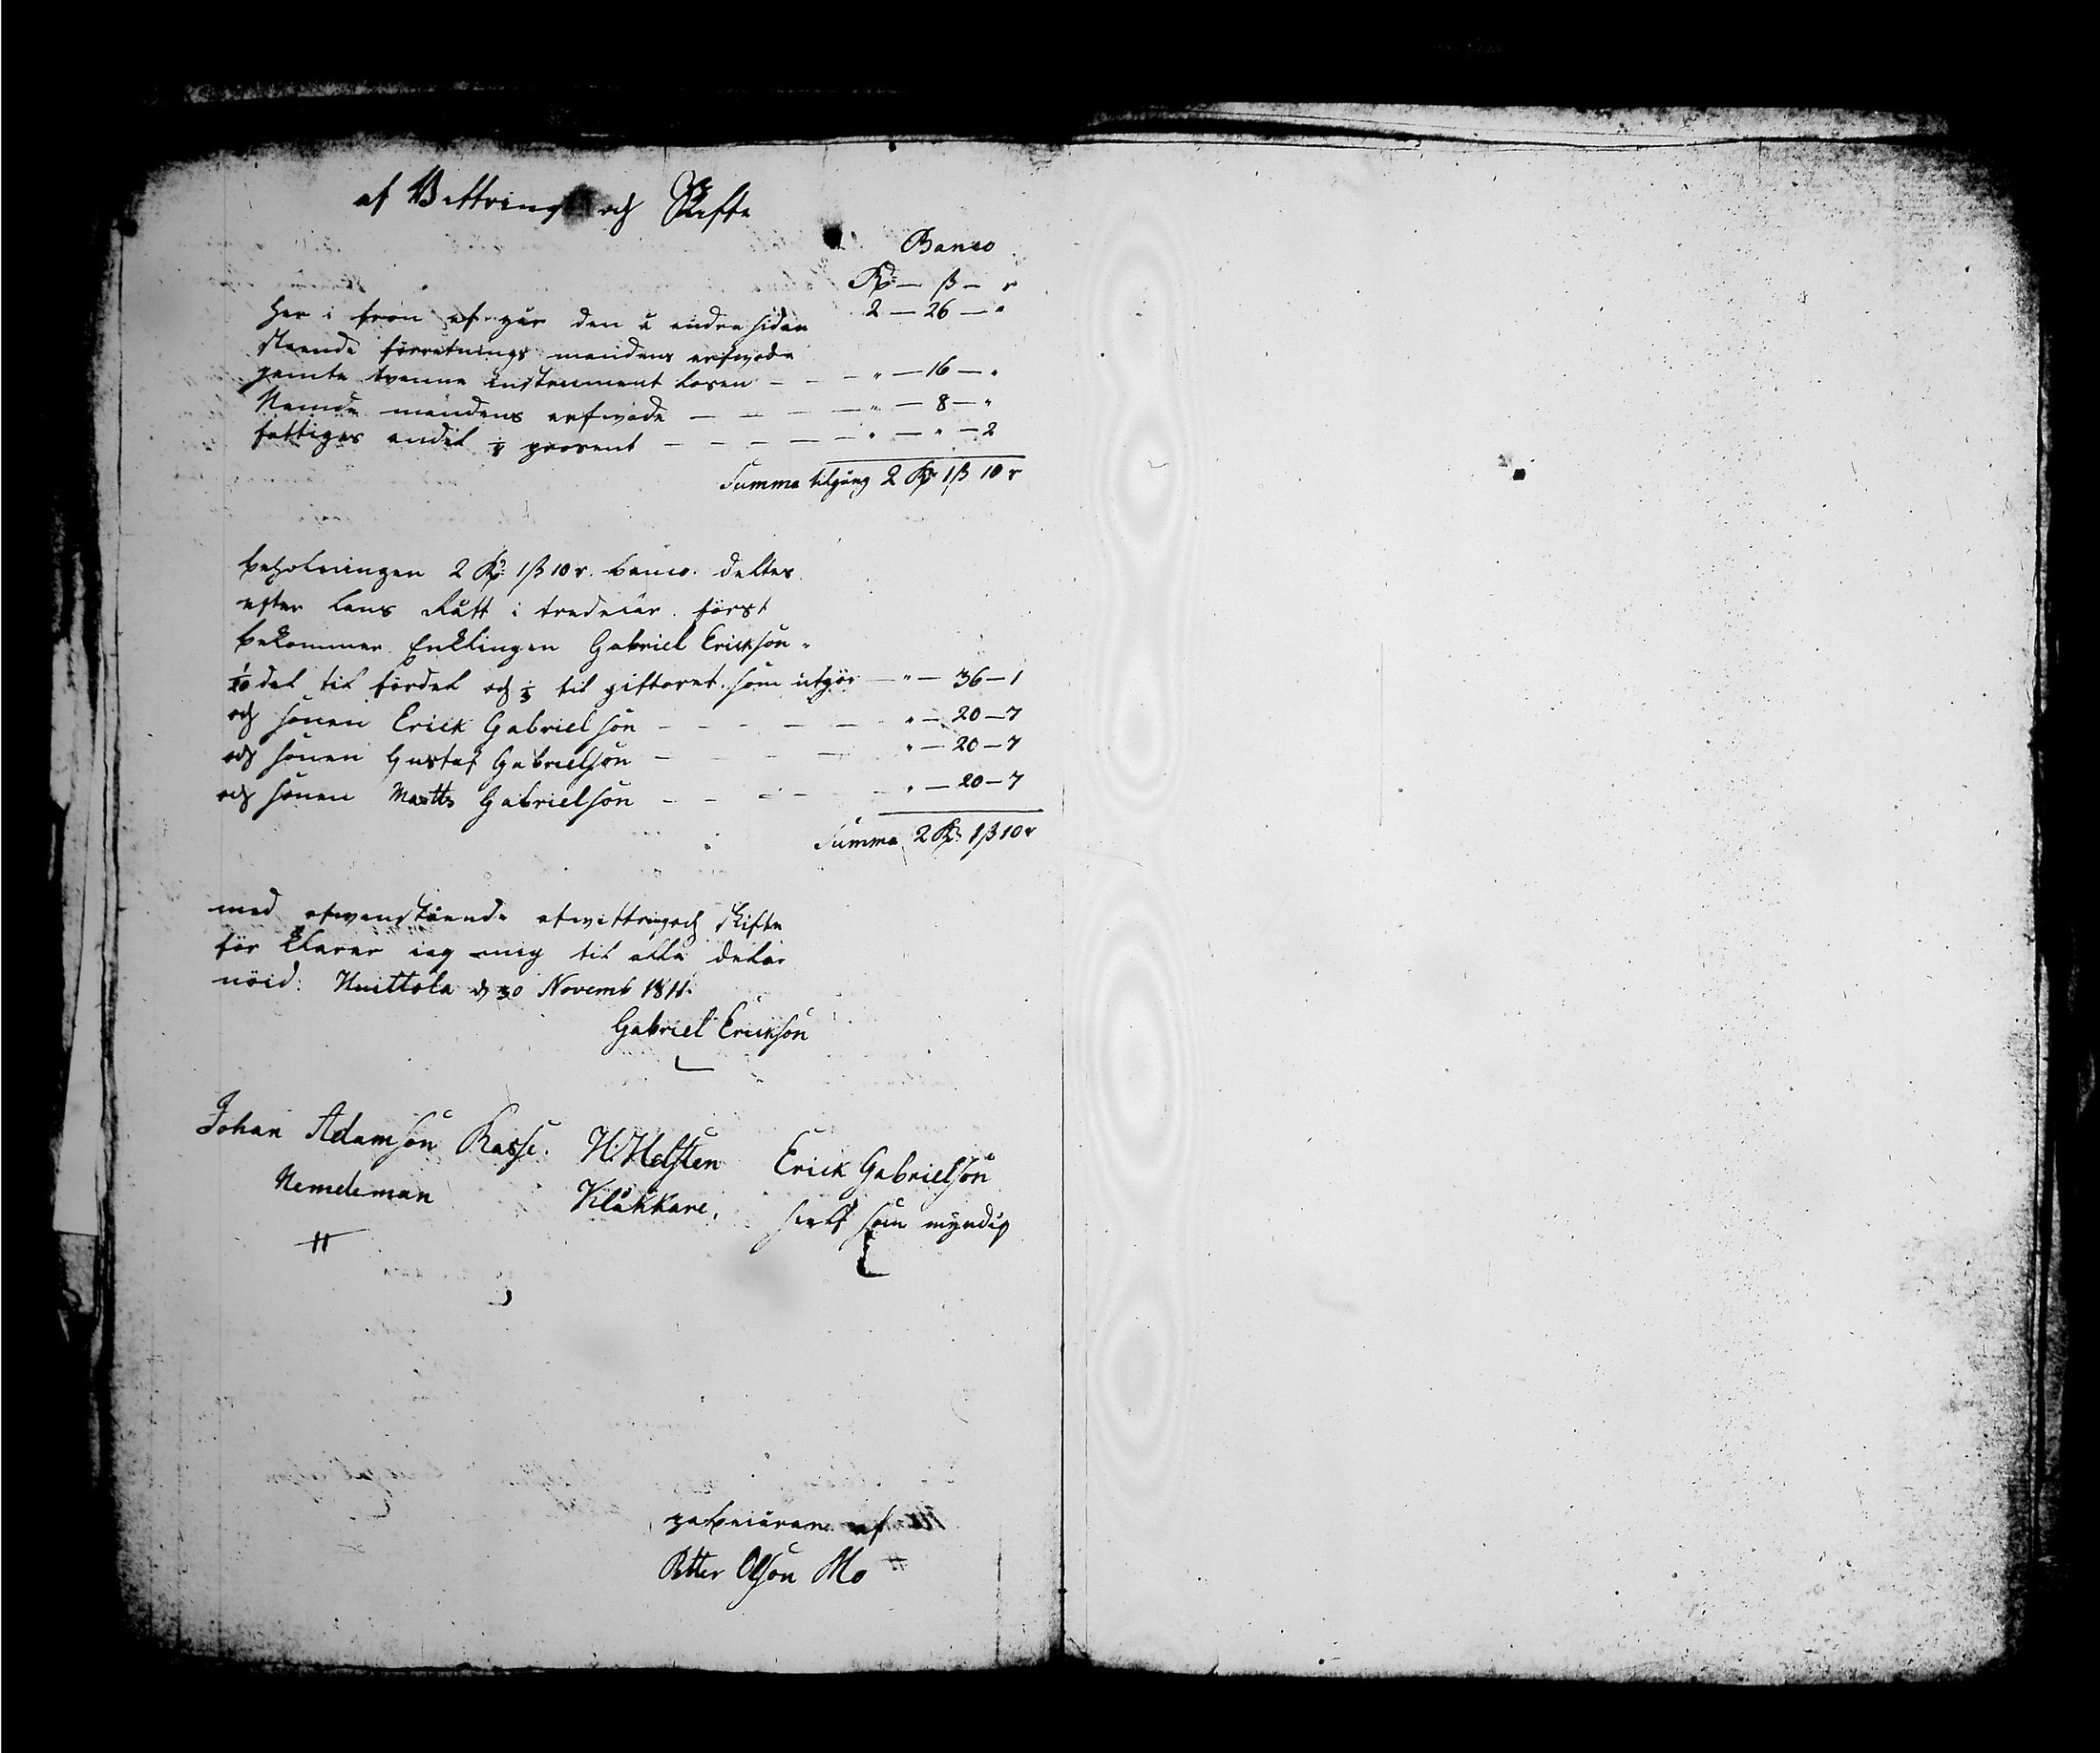 af Vittring och Skifte
Banco
Rd — β — r
Her i fron af går den å andra sidan 2 — 26 — "
stående förretnings mandens arfwode
jemte tvenne instrument lösen — — — " — 16 — "
Nemde mandens arfwode — — — — " — 8 — "
fattigas andel ⅛ prosent — — — — — " — " — 2
Summa tilgång 2 Rd 1β 10 r
beholningen 2 Rd 1β 10 r. banco. deltes
efter lans Rätt i tredeiär. först
bekommer Enklingen Gabriel Erickson.
1/10 del til fördel och ⅓ til giftoret. som utgör — " — 36 — 1
och sonen Erick Gabrielson — — — — " — 20 — 7
och sonen Gustaf Gabrielson — — — — " — 20 — 7
och sonen Matts Gabrielson — — — — " — 20 — 7
Summa 2 Rd 1β 10 r
med ofwanstående afwittring och skifte
för klarar iag mig til alla delar
nöid: Huittola d 30 Novemb 1811.
Gabriel Erickson
Johan Adamson Rasse. H. Helsten Erick Gabrielson
Nemdeman Klåkkare, sielf som myndig
af
Petter Olson Mo